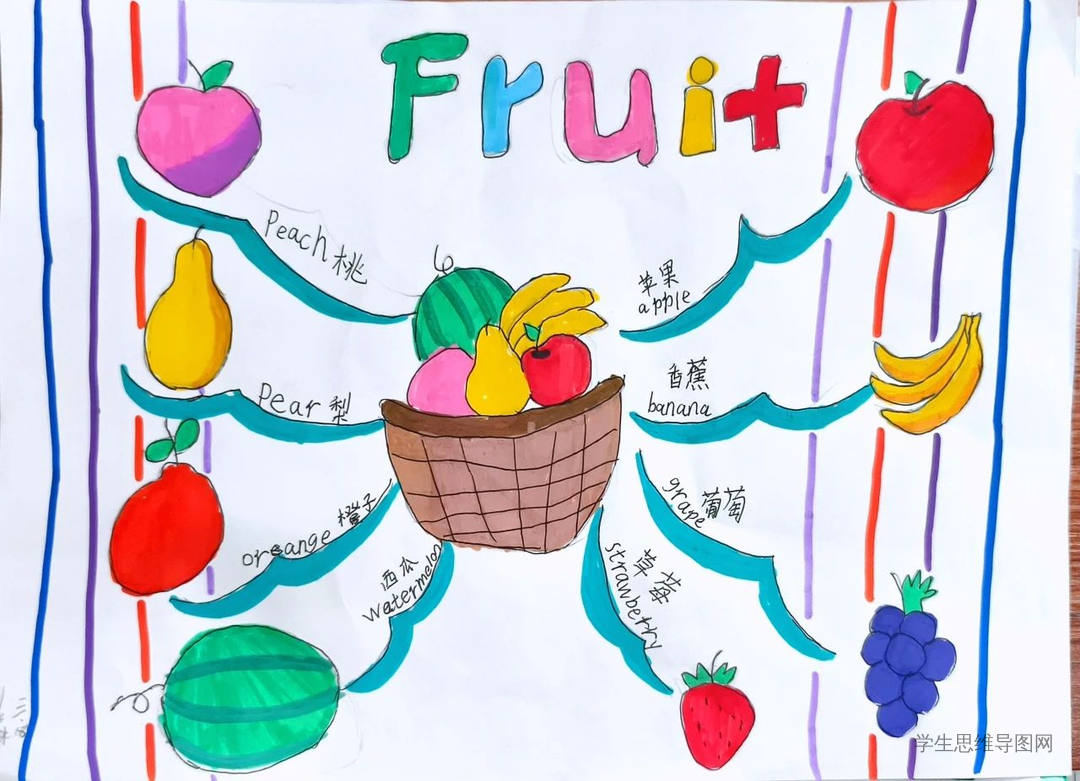 Fruit
Peach 桃
苹果
apple
Pear 梨
香蕉
banana
oreange 橙子
grape 葡萄
西瓜
watermelon
草莓
strawberry
学生思维导图网